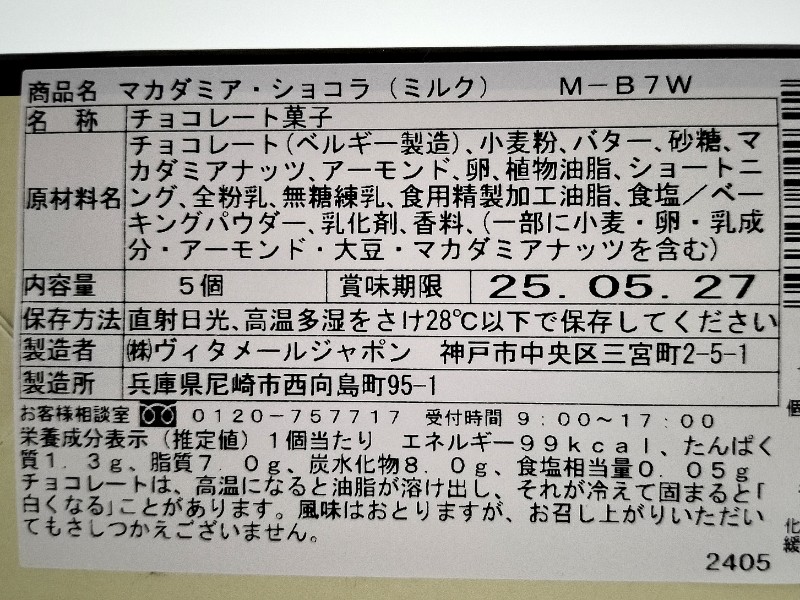 商品名 マカダミア・ショコラ（ミルク） M－B7W
名 称 チョコレート菓子
原材料名 チョコレート(ベルギー製造)、小麦粉、バター、砂糖、マ
カダミアナッツ、アーモンド、卵、植物油脂、ショートニ
ング、全粉乳、無糖練乳、食用精製加工油脂、食塩／ベー
キングパウダー、乳化剤、香料、(一部に小麦・卵・乳成
分・アーモンド・大豆・マカダミアナッツを含む)
内容量 5個 賞味期限 25.05.27
保存方法 直射日光、高温多湿をさけ28℃以下で保存してください
製造者 ㈱ヴィタメールジャポン 神戸市中央区三宮町2-5-1
製造所 兵庫県尼崎市西向島町95-1
お客様相談室 0120－757717 受付時間 9：00～17：00
栄養成分表示（推定値）1個当たり エネルギー99kcal、たんぱく
質1.3g、脂質7.0g、炭水化物8.0g、食塩相当量0.05g
チョコレートは、高温になると油脂が溶け出し、それが冷えて固まると「
白くなる」ことがあります。風味はおとりますが、お召し上がりいただい
てもさしつかえございません。
2405
個
化
緩